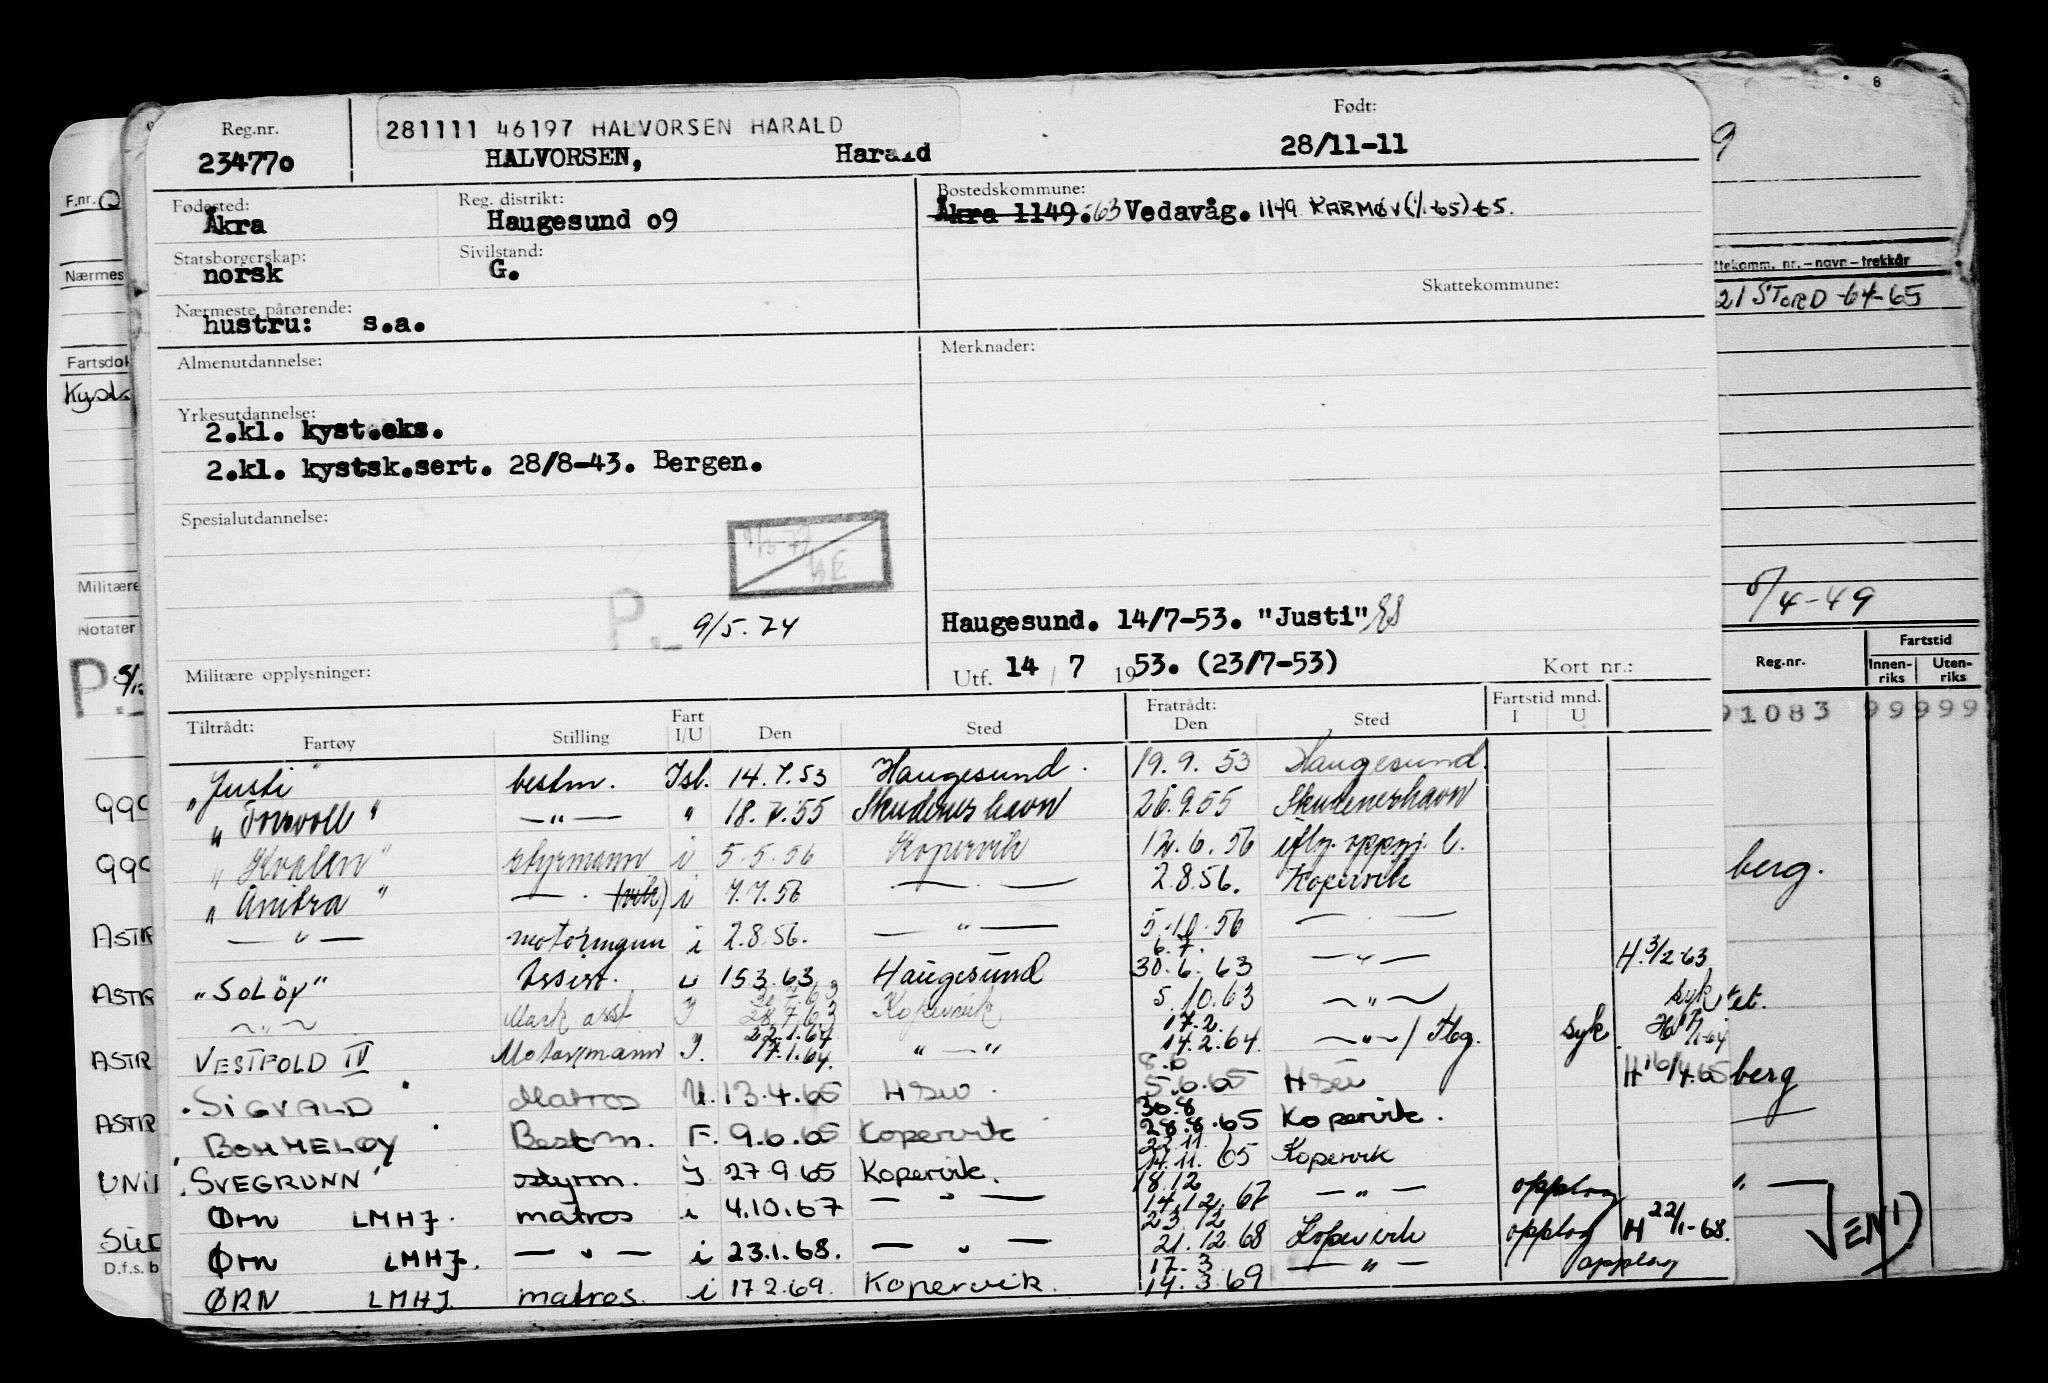 Reg.nr.
234770
281111 46197 HALVORSEN HARALD
HALVORSEN, Harald
Født:
28/11-11
Fødested:
Åkra
Reg. distrikt:
Haugesund 09
Bostedskommune:
Åkra 1149.-63 Vedavåg. 1149 KARMØY (1/1-65)-65.
Statsborgerskap:
norsk
Sivilstand:
G.
Skattekommune:
Nærmeste pårørende:
hustru: s.a.
Almenutdannelse:
Merknader:
Yrkesutdannelse:
2.kl. kyst.eks.
2.kl. kystsk.sert. 28/8-43. Bergen.
Spesialutdannelse:
P.
9/5.74
Haugesund. 14/7-53. "Justi"
Militære opplysninger:
Utf. 14 / 7 1953. (23/7-53)
Kort nr.:
Tiltrådt:
Fartøy Stilling Fart I/U Den Sted
Fratrådt:
Den Sted
Fartstid mnd.
I U
"Justi" bestm. Isl. 14.7.53 Haugesund. 19.9.53 Haugesund.
" —"— " 18.7.55 Skudeneshavn 26.9.55 Skudeneshavn
"Kvalen" styrmann i 5.5.56 Kopervik 12.6.56
"Anitra" — . — i 7.7.56 — . — 2.8.56. Kopervik
— " — motormann i 2.8.56. — " — 5.10.56 — . —
"SOLÖY" Assist. 15.3.63 Haugesund 6.7. 30.6.63 — " — H.3/2-63
— " — Mask asst I 28.7.63 Kopervik 5.10.63 — " — syk
VESTFOLD IV Motormann I. 22.1.64 17.1.64. " — " 17.2. 14.2.64. — " — / Tbg. syk.
"SIGVALD" Matros U. 13.4.65 HSUD. 8.6 5.6.65 HSUD H 16/4.65
"BÖMMELØY" Bestm. F. 9.6.65 Kopervik 30.8 28.8.65 Kopervik.
"SVEGRUNN" styrm. I. 27.9.65 Kopervik. 22.11. 14.11.65 Kopervik
Ørn LMHJ. matros i 4.10.67 — " — 18.12 14.12.67 — " — opplag
Ørn LMHJ. — " — i 23.1.68. — " — 23.12 21.12.68 Kopervik opplag H 22/1-68.
ØRN LMHJ. matros. i 17.2.69. Kopervik. 17.3 14.3.69 — " — opplag
F.nr.
Nærmes
Fartsdok
Kys
Militære
Notater
P.
99
99
ASTR
ASTR
ASTR
ASTR
UNI
D.f.s. b
8
9
ttekomm. nr. – navn – trekkår
21 STORD -64-65
/4-49
Reg.nr.
Fartstid
Innen-riks
Uten-riks
91083 99999
berg.
et.
berg
" —
VEND